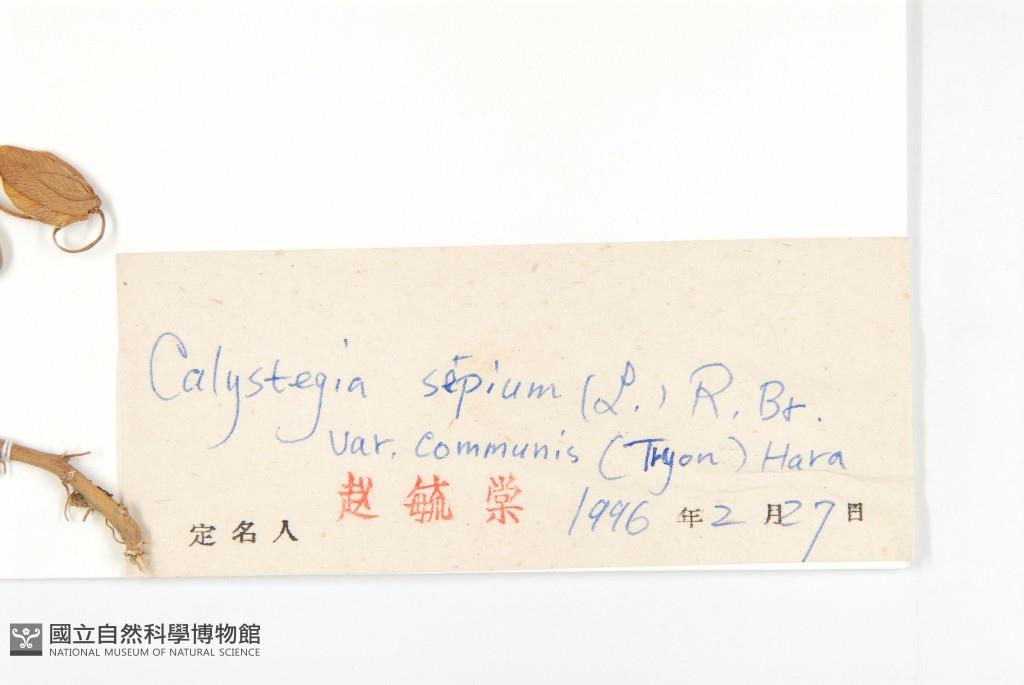 Calystegia sepium (L.) R. Br.
var. communis (Tryon) Hara
定名人 赵毓棠 1996 年 2 月 27 日
國立自然科學博物館
NATIONAL MUSEUM OF NATURAL SCIENCE